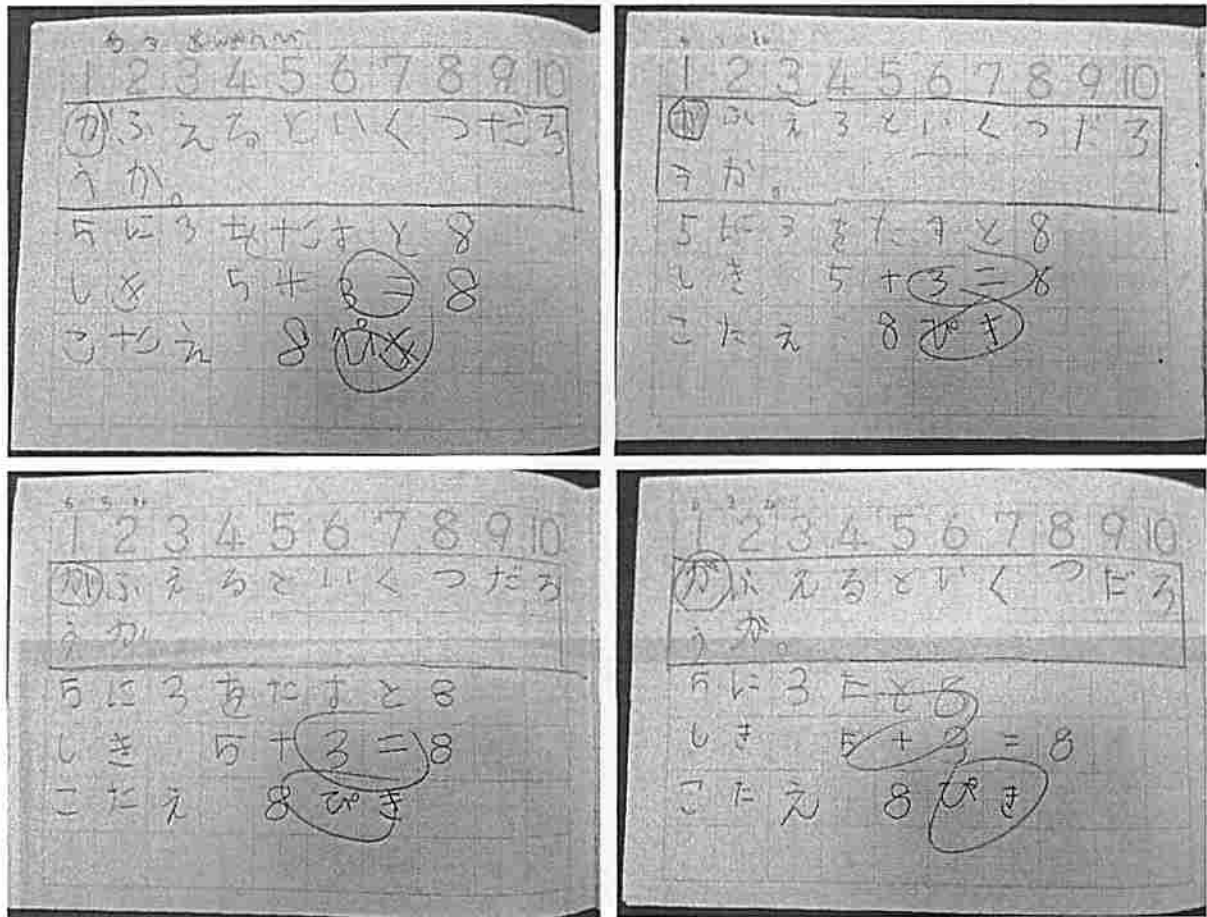 1 2 3 4 5 6 7 8 9 10
がふえるといくつだろ
うか。
5に3をたすと8
しき 5+3=8
こたえ 8ぴき
1 2 3 4 5 6 7 8 9 10
がふえるといくつだろ
うか。
5に3をたすと8
しき 5+3=8
こたえ 8ぴき
1 2 3 4 5 6 7 8 9 10
がふえるといくつだろ
うか
5に3をたすと8
しき 5+3=8
こたえ 8ぴき
1 2 3 4 5 6 7 8 9 10
がふえるといくつだろ
うか。
5に3
しき 5+3=8
こたえ 8ぴき